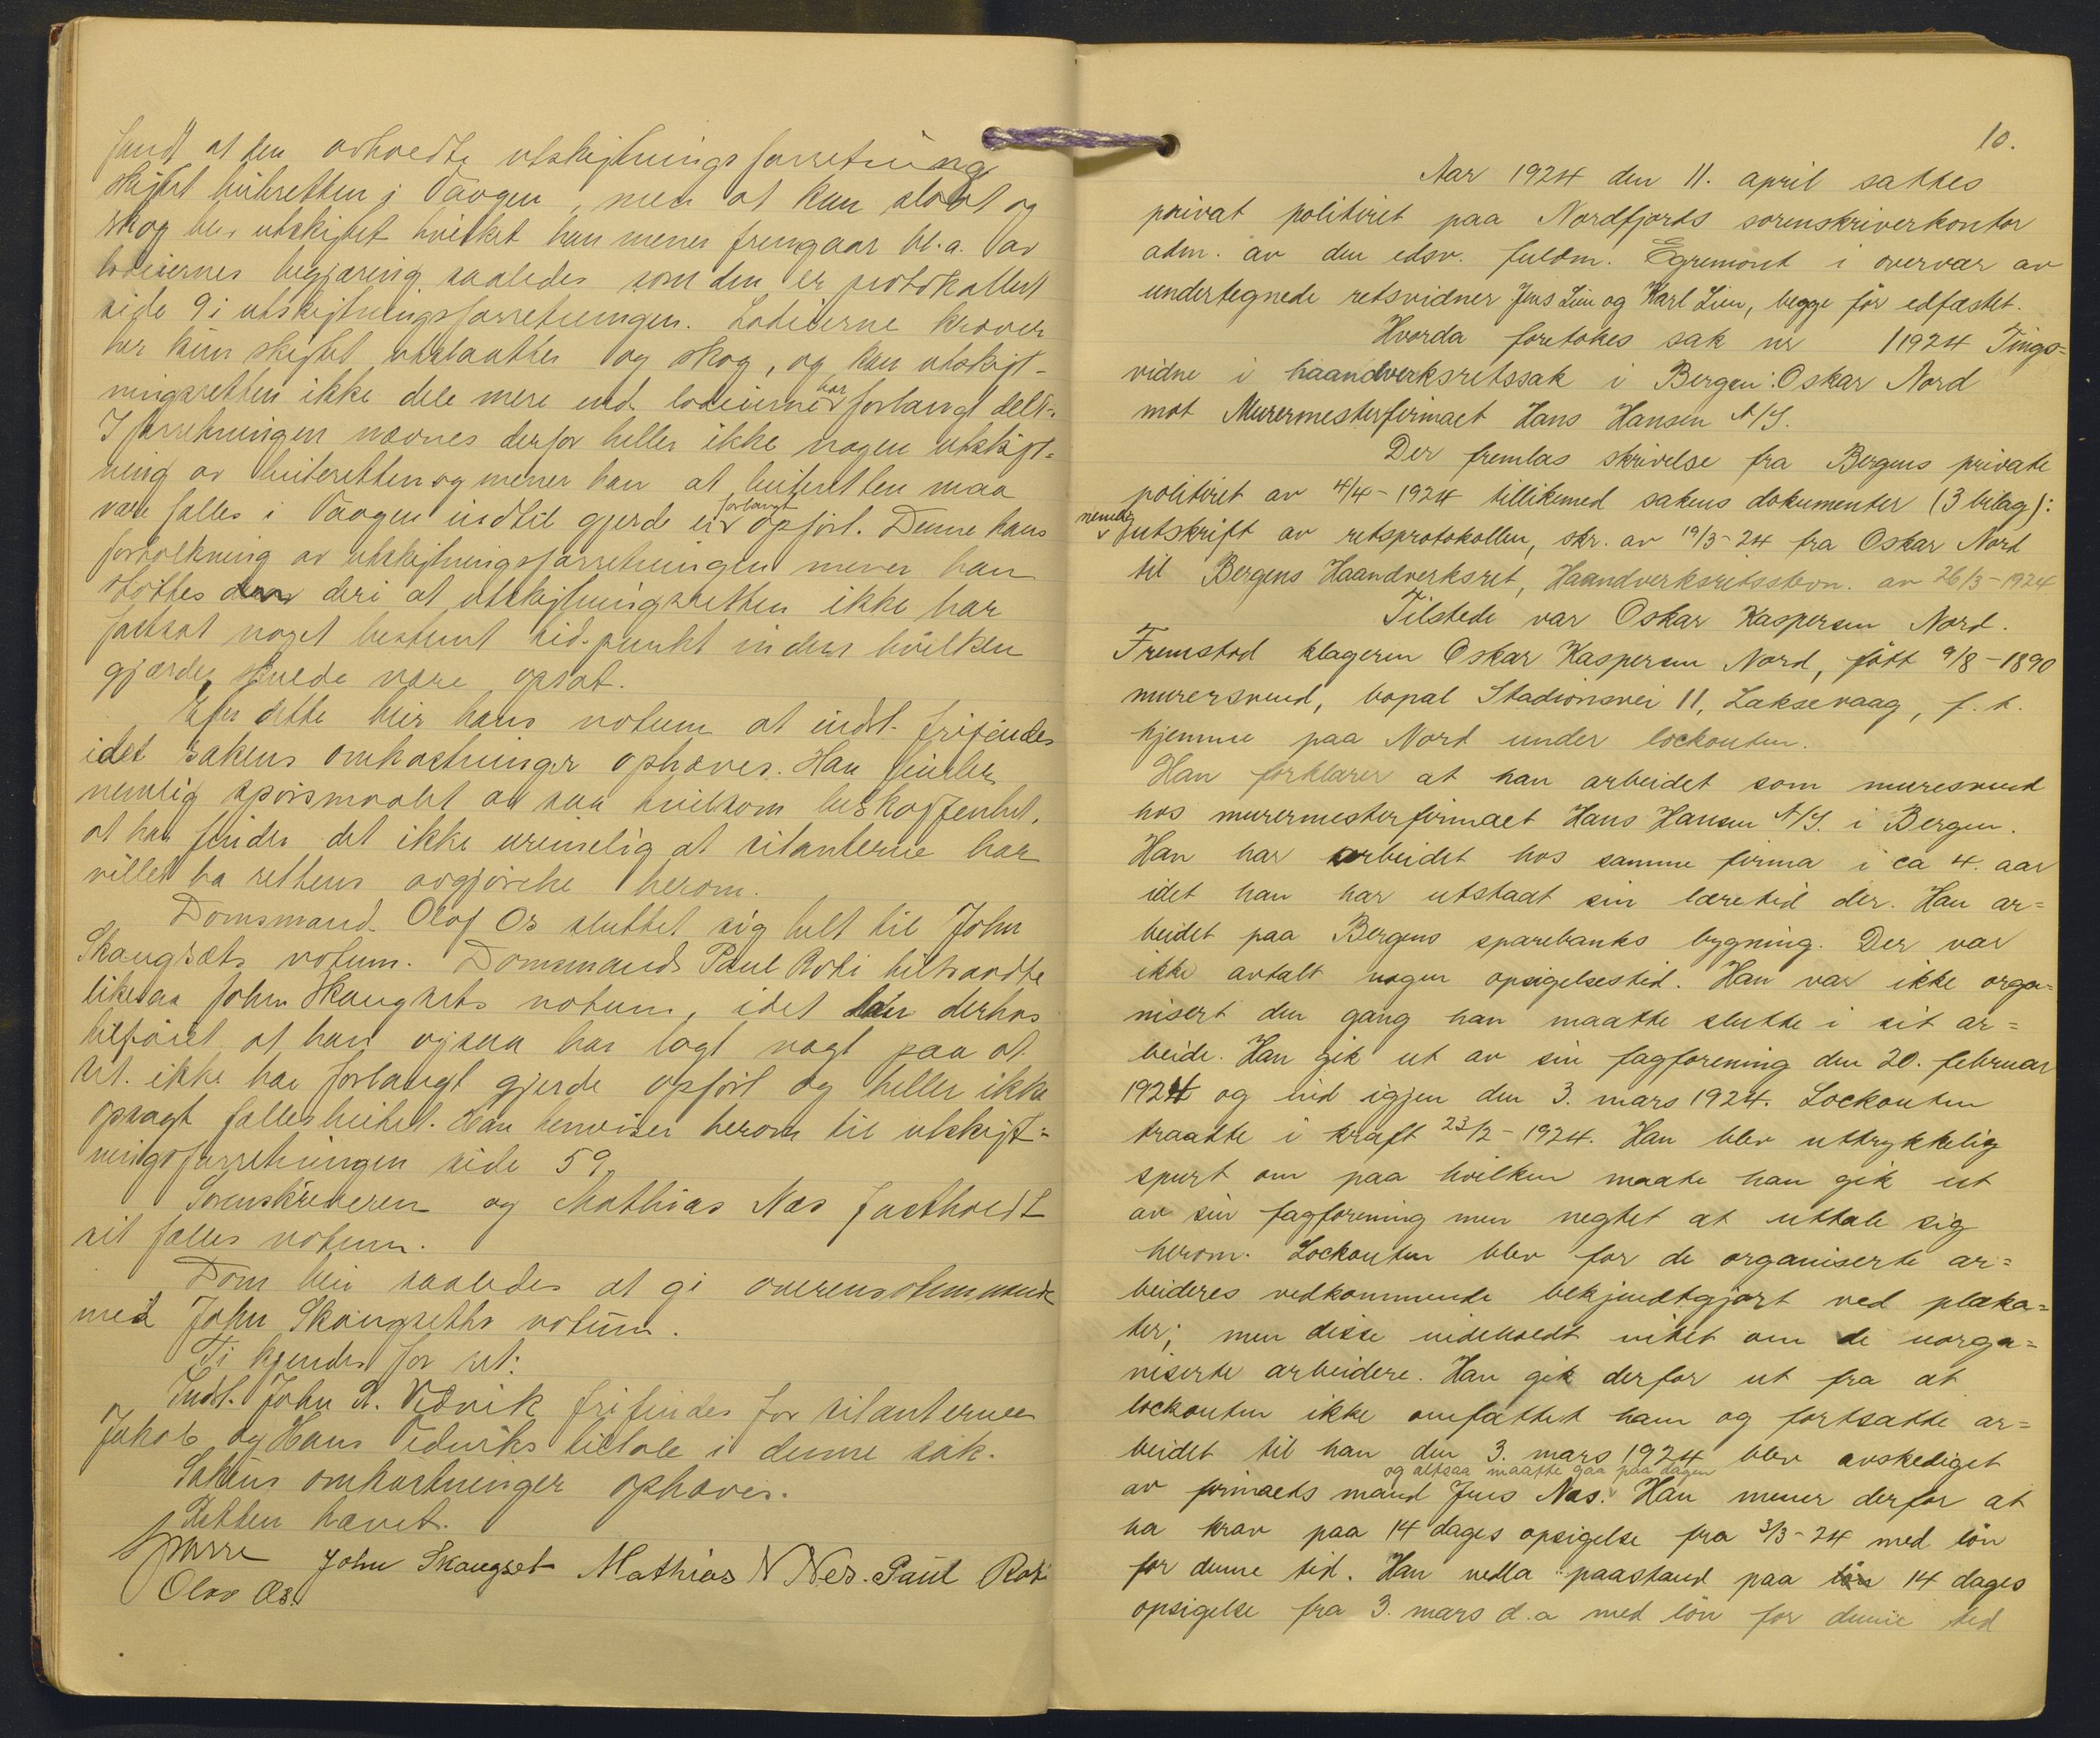 fandt at den avholdte utskiftningsforretning
skiftet beiteretten i Vaagen, men at kun slaat og
skog blev utskiftet hvilket han mener fremgaar bl.a. av
lodeiernes begjæring saaledes som den er protokollert
side 9 i utskiftningsforretningen. Lodeierne kræver
her kun skiftet utslaatter og skog, og kan utskift-
ningsretten ikke dele mere end lodeierne har forlangt delt.
I forretningen nævnes derfor heller ikke nogen utskift-
ning av beiteretten og mener han at beiteretten maa
være fælles i Vaagen indtil gjerde er forlangt opført. Denne hans
fortolkning av utskiftningsforretningen mener han
støttes deri at utskiftningsretten ikke har
fastsat noget bestemt tidspunkt inden hvilken
gjærder skulde være opsat.
Efter dette blir hans votum at indst. frifindes
idet sakens omkostninger ophæves. Han finder
nemlig spørsmaalet av saa tvilsom beskaffenhet,
at han finder det ikke urimelig at citanterne har
villet ha rettens avgjørelse herom.
Domsmand Olaf Os sluttet sig helt til John
Skaugsets votum. Domsmand Paul Roti tiltraadte
likesaa John Skaugsets votum, idet han derhos
tilføiet at han ogsaa har lagt vegt paa at
cit. ikke har forlangt gjerde opført og heller ikke
opsagt fællesbeitet. Han henviser herom til utskift-
ningsforretningen side 59.
Sorenskriveren og Mathias Nes fastholdt
sit fælles votum.
Dom blir saaledes at gi overensstemmende
med John Skaugseths votum.
Ti kjendes for ret:
Indst. John R. Vedvik frifindes for citanternes
Jakob og Hans Vedviks tiltale i denne sak.
Sakens omkostninger ophæves.
Retten hævet.
Sparre John Skaugset Mathias N Nes. Paul Roti
Olav Os.
10.
Aar 1924 den 11. april sattes
privat politiret paa Nordfjords sorenskriverkontor
adm. av den edsv. fuldm. Egremont i overvær av
undertegnede retsvidner Jens Lien og Karl Lien, begge før edfæstet.
Hvorda foretokes sak nr /1924 Tings=
vidne i haandverksretssak i Bergen: Oskar Nord
mot Murermesterfirmaet Hans Hansen A/S.
Der fremlas skrivelse fra Bergens private
politiret av 4/4-1924 tillikemed sakens dokumenter (3 bilag):
nemlig utskrift av retsprotokollen, skr. av 19/3-24 fra Oskar Nord
til Bergens Haandverksret, Haandverksretsstevn. av 26/3-1924
Tilstede var Oskar Kaspersen Nord.
Fremstod klageren Oskar Kaspersen Nord, født 9/8-1890
murersvend, bopæl Stadionsvei 11, Laksevaag, f. t.
hjemme paa Nord under lockouten.
Han forklarer at han arbeidet som muresvend
hos murermesterfirmaet Hans Hansen A/S. i Bergen.
Han har arbeidet hos samme firma i ca 4. aar
idet han har utstaat sin læretid der. Han ar=
beidet paa Bergens sparebanks bygning. Der var
ikke avtalt nogen opsigelsestid. Han var ikke orga=
nisert den gang han maatte slutte i sit ar=
beide. Han gik ut av sin fagforening den 20. februar
1924 og ind igjen den 3. mars 1924. Lockouten
traatte i kraft 23/2-1924. Han blev uttrykkelig
spurt om paa hvilken maate han gik ut
av sin fagforening men negtet at uttale sig
herom. Lockouten blev for de organiserte ar=
beideres vedkommende bekjendtgjort ved plaka=
ter; men disse indeholdt intet om de uorga=
niserte arbeidere. Han gik derfor ut fra at
lockouten ikke omfattet ham og fortsatte ar=
beidet til han den 3. mars 1924 blev avskediget
og altsaa maatte gaa paa dagen
av firmaets mand Jens Nes. Han mener derfor at
ha krav paa 14 dages opsigelse fra 3/3-24 med løn
for denne tid. Han nedla paastand paa løn 14 dages
opsigelse fra 3. mars d.a med løn for denne tid